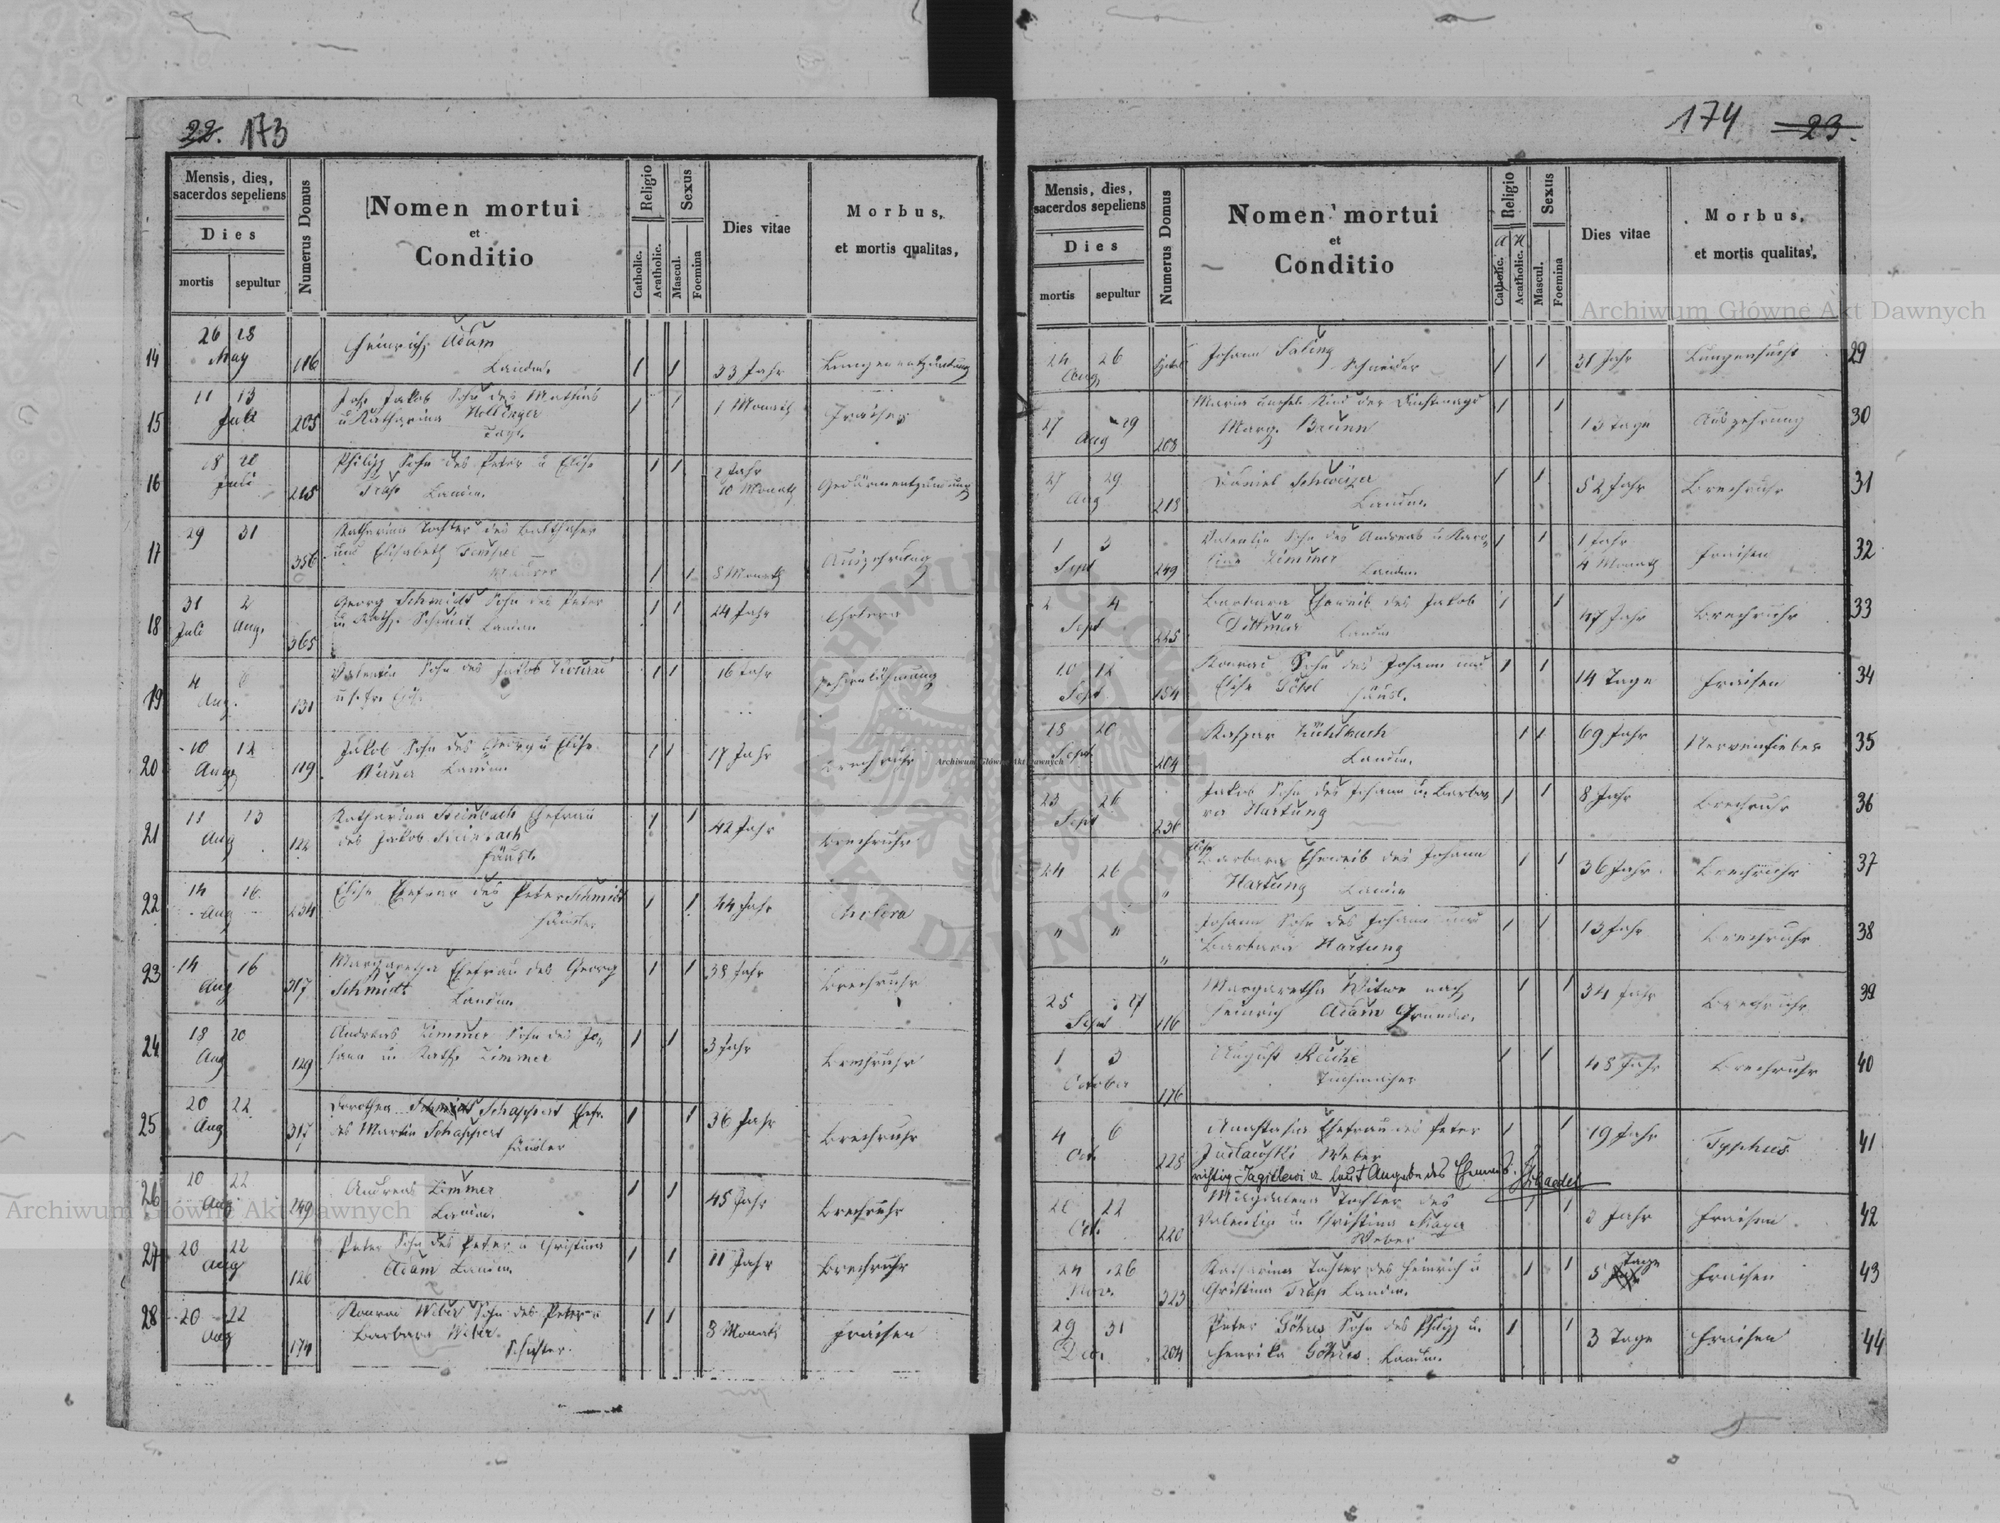 22. 173
Mensis, dies,
sacerdos sepeliens
Dies
mortis sepultur
Numerus Domus
Nomen mortui
et
Conditio
Religio
Catholic.
Acatholic.
Sexus
Mascul.
Foemina
Dies vitae
Morbus,
et mortis qualitas,
14 26 28 May 116 Heinrich Adam
Landm. 1 1 33 Jahr Lungenentzündung
15 11 13 Juli 205 Jakob Sohn des Mathias
u Katharina Hollinger
Tagl. 1 1 1 Monath Fraisen
16 18 20 Juli 265 Philipp Sohn des Peter u Elise
Landm. 1 1 2 Jahr
10 Monath Gedärmentzündung
17 29 31 356 Katharina Tochter des Balthasar
und Elisabeth
Maurer 1 1 8 Monath Auszehrung
18 31 Juli 2 Aug. 365 Georg Schmidt Sohn des Peter
u Kath. Schmidt Landm 1 1 24 Jahr Cholera
19 4 6 Aug. 131 Valentin Sohn des Jakob
u. s. Fr. Elis. 1 1 16 Jahr
20 10 12 Aug 119 Jakob Sohn des Georg u Elise
Landm 1 1 17 Jahr Brechruhr
21 11 13 Aug 122 Katharina Steinbach Ehefrau
des Jakob Steinbach
Häusl. 1 1 42 Jahr Brechruhr
22 14 16 Aug 234 Elise Ehefrau des Peter Schmidt
Häusler 1 1 44 Jahr Cholera
23 14 16 Aug 317 Margaretha Ehefrau des Georg
Schmidt Landm 1 1 38 Jahr Brechruhr
24 18 20 Aug 129 Andreas Zimmer Sohn des Jo-
hann u Kath. Zimmer 1 1 3 Jahr Brechruhr
25 20 22 Aug 317 Dorothea Schmidt Schappert Ehefr.
des Martin Schappert
Häusler 1 1 36 Jahr Brechruhr
26 20 22 Aug 249 Andreas Zimmer
Landm. 1 1 45 Jahr Brechruhr
27 20 22 Aug 120 Peter Sohn des Peter u Christina
Adam Landm. 1 1 11 Jahr Brechruhr
28 20 22 Aug 174 Konrad Weber Sohn des Peter u
Barbara Weber
Schuster. 1 1 8 Monath Fraisen
174 23.
Mensis, dies,
sacerdos sepeliens
Dies
mortis sepultur
Numerus Domus
Nomen mortui
et
Conditio
Religio
Catholic.
Acatholic.
Sexus
Mascul.
Foemina
Dies vitae
Morbus,
et mortis qualitas,
24 26 Aug. Johann Saling
Schneider 1 1 31 Jahr Lungensucht 29
27 29 Aug 208 Maria unehel. Kind der Dienstmagd
Marg. Brunn 1 1 13 Tage Auszehrung 30
27 29 Aug 218 Daniel Schweizer
Landm. 1 1 52 Jahr Brechruhr 31
1 3 Sept 249 Valentin Sohn des Andreas u Karo-
line Zimmer Landm. 1 1 1 Jahr
4 Monath Fraisen 32
2 4 Sept 225 Barbara Eheweib des Jakob
Dittmär Landm 1 1 47 Jahr Brechruhr 33
10 12 Sept 184 Konrad Sohn des Johann und
Elise Göhl Häusl. 1 1 14 Tage Fraisen 34
18 20 Sept. 264 Kaspar Kühlbach
Landm. 1 1 69 Jahr Nervenfieber 35
23 26 Sept 236 Jakob Sohn des Johann u. Barba-
ra Hartung 1 1 8 Jahr Brechruhr 36
24 26 " Barbara Eheweib des Johann
Hartung Landm 1 1 36 Jahr Brechruhr 37
" " " Johann Sohn des Johann und
Barbara Hartung 1 1 13 Jahr Brechruhr 38
25 27 Sept 116 Margaretha Witwe nach
Heinrich Adam 1 1 34 Jahr Brechruhr 39
1 3 October 176 August
Tuchmacher 1 1 48 Jahr Brechruhr 40
4 6 Oct. 225 Anastasia Ehefrau des Peter
Judlawski Weber 1 1 19 Jahr Typhus 41
richtig laut Angabe des Ehemanns.
20 22 Oct. 220 Magdalena Tochter des
Valentin u Christina Mayer
Weber 1 1 Jahr Fraisen 42
24 26 Nov. 323 Katharina Tochter des Heinrich u
Christina Landm. 1 1 5 Tage Fraisen 43
29 31 Dec. 204 Peter Göhres Sohn des Philipp u.
Henrika Göhres Landm. 1 1 3 Tage Fraisen 44
Archiwum Główne Akt Dawnych
Archiwum Główne Akt Dawnych
Archiwum Główne Akt Dawnych
ARCHIWUM GŁÓWNE AKT DAWNYCH